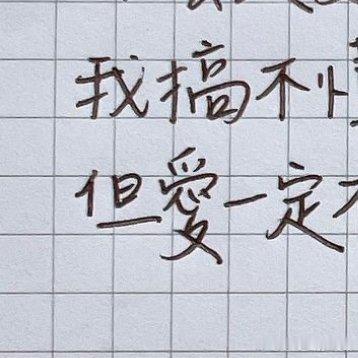 我搞不
但愛一定